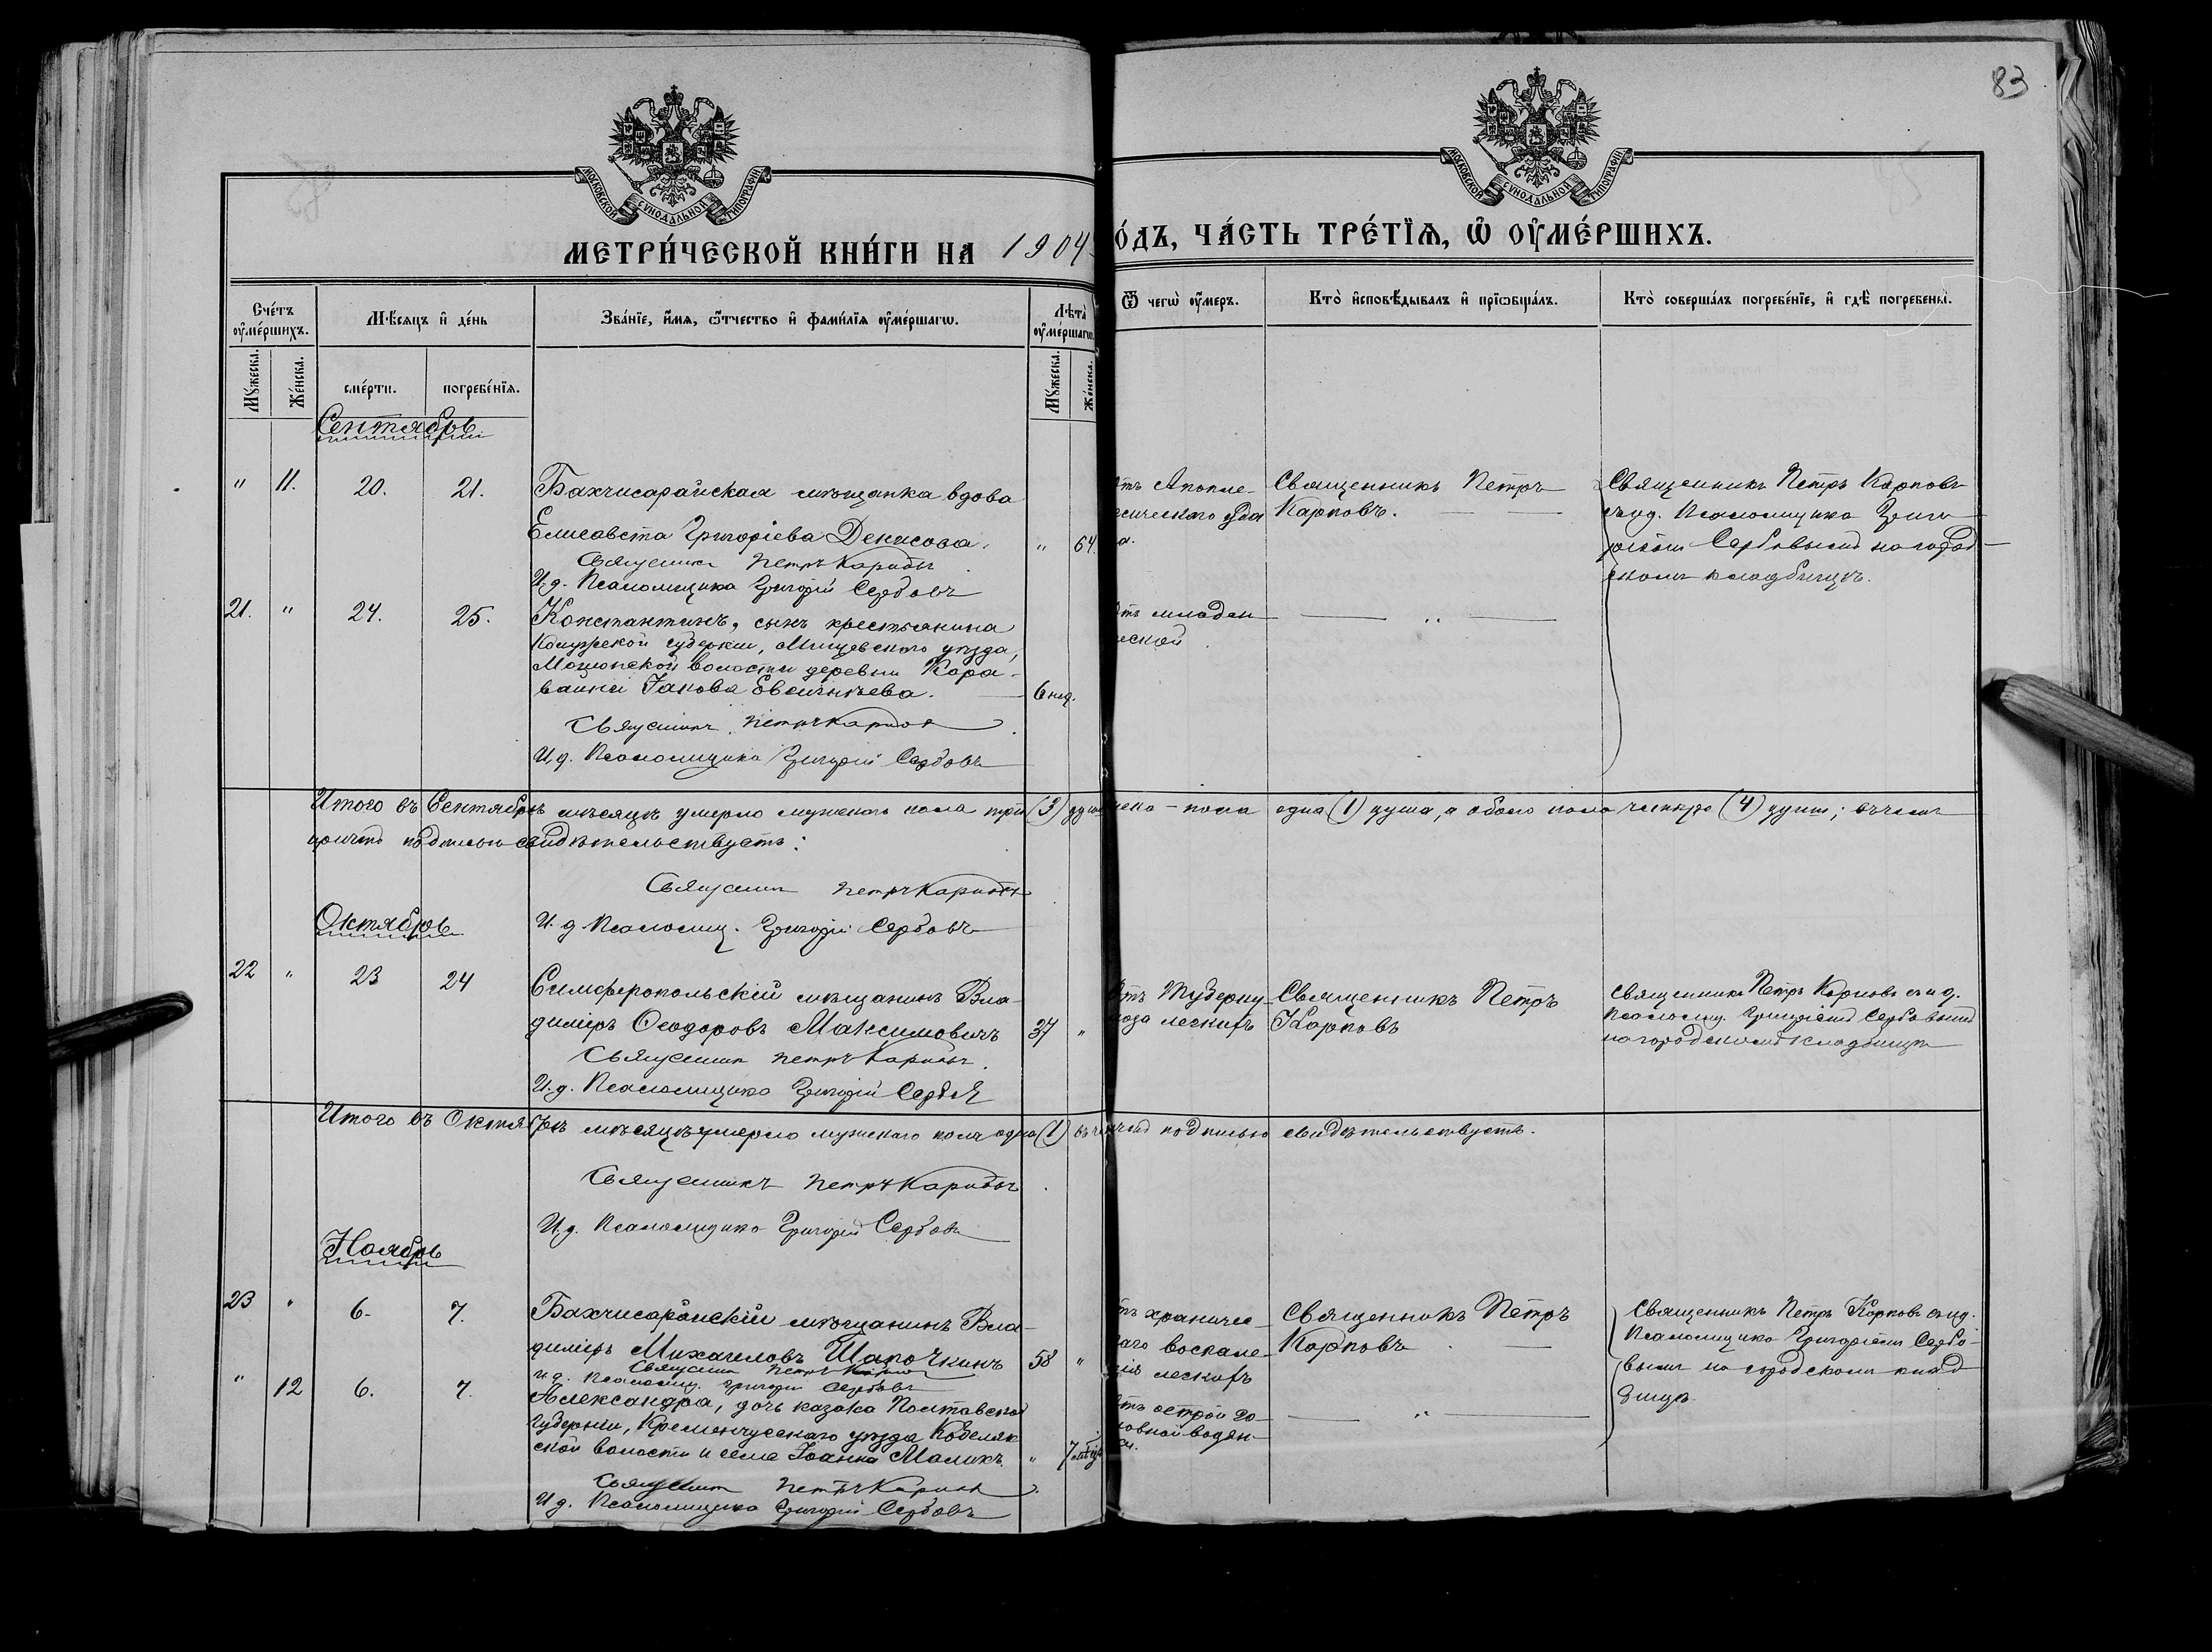 83
МОСКОВСКОЙ СѴНОДАЛЬНОЙ ТИПОГРАФІИ
МОСКОВСКОЙ СѴНОДАЛЬНОЙ ТИПОГРАФІИ
МЕТРИ́ЧЕСКОЙ КНИ́ГИ НА 1904
О́ДЪ, ЧА́СТЬ ТРЕ́ТЇѦ, Ѡ҆ ОУ҆МЕ́РШИХЪ.
Сче́тъ оу҆ме́ршихъ.
Мѣ́сѧцъ и҆ де́нь
Зва́нїе, и҆́мѧ, ѻ҆́тчество и҆ фами́лїѧ оу҆ме́ршагѡ.
Лѣ́та оу҆ме́ршагѡ.
Ѿ чегѡ̀ оу҆́меръ.
Кто̀ и҆сповѣ́дывалъ и҆ прїѡбща́лъ.
Кто̀ соверша́лъ погребе́нїе, и҆ гдѣ̀ погребены̀.
Мꙋ́жеска.
Же́нска.
сме́рти.
погребе́нїѧ.
Мꙋ́жеска.
Же́нска.
Сентябрь.
" 11. 20. 21. Бахчисарайская мѣщанка вдова
Елисавета Григоріева Денисова. " 64.
Священникъ Петръ Карповъ
И. д. Псаломщика Григорій Сербовъ
отъ Апопле-
ксическаго уда
ра.
Священникъ Петръ
Карповъ.
Священникъ Петръ Карповъ
съ и д. Псаломщика Григо
ріемъ Сербовымъ на город-
скомъ кладбищѣ.
21. " 24. 25. Константинъ, сынъ крестьянина
Калужской губерніи, Мещовскаго уѣзда,
волости деревни Кара-
Іакова Евсигнѣева. 6 нед.
Священникъ Петръ Карповъ
И. д. Псаломщика Григорій Сербовъ
отъ младен
ческой
"
Итого въ Сентябрѣ мѣсяцѣ умерло мужскаго пола три (3) душ
женска-пола одна (1) душа, а обоего пола четыре (4) души; въ чемъ
причтъ подписью свидѣтельствуетъ:
Священникъ Петръ Карповъ
И. д. Псаломщ. Григорій Сербовъ
Октябрь
22 " 23 24 Симферопольскій мѣщанинъ Вла-
диміръ Ѳеодоровъ Максимовичъ 37 "
Священникъ Петръ Карповъ.
И. д. Псаломщика Григорій Сербовъ
отъ Туберку-
лоза легкихъ
Священникъ Петръ
Карповъ
Священникъ Петръ Карповъ съ и д.
Псаломщ. Григоріемъ Сербовымъ
на городскомъ кладбищѣ
Итого въ Октябрѣ мѣсяцѣ умерло мужскаго пола одна (1) въ чемъ подписью свидѣтельствуетъ.
Священникъ Петръ Карповъ.
И. д. Псаломщика Григорій Сербовъ
Ноябрь
23 " 6. 7. Бахчисарайскій мѣщанинъ Вла-
диміръ Михаиловъ Шапочкинъ 58 "
Священникъ Петръ Карповъ
И. д. Псаломщ. Григорій Сербовъ
отъ храниче-
скаго воспале-
нія легкихъ
Священникъ Петръ
Карповъ
Священникъ Петръ Карповъ съ и д.
Псаломщика Григоріемъ Сербо-
вымъ на городскомъ клад
бищѣ
" 12 6. 7. Александра, дочь казака Полтавской
губерніи, Кременчугскаго уѣзда Кобеляк
ской волости и села Іоанна Маликъ. "
Священникъ Петръ Карповъ.
И. д. Псаломщика Григорій Сербовъ
отъ острой го-
ловной водян-
ки.
"